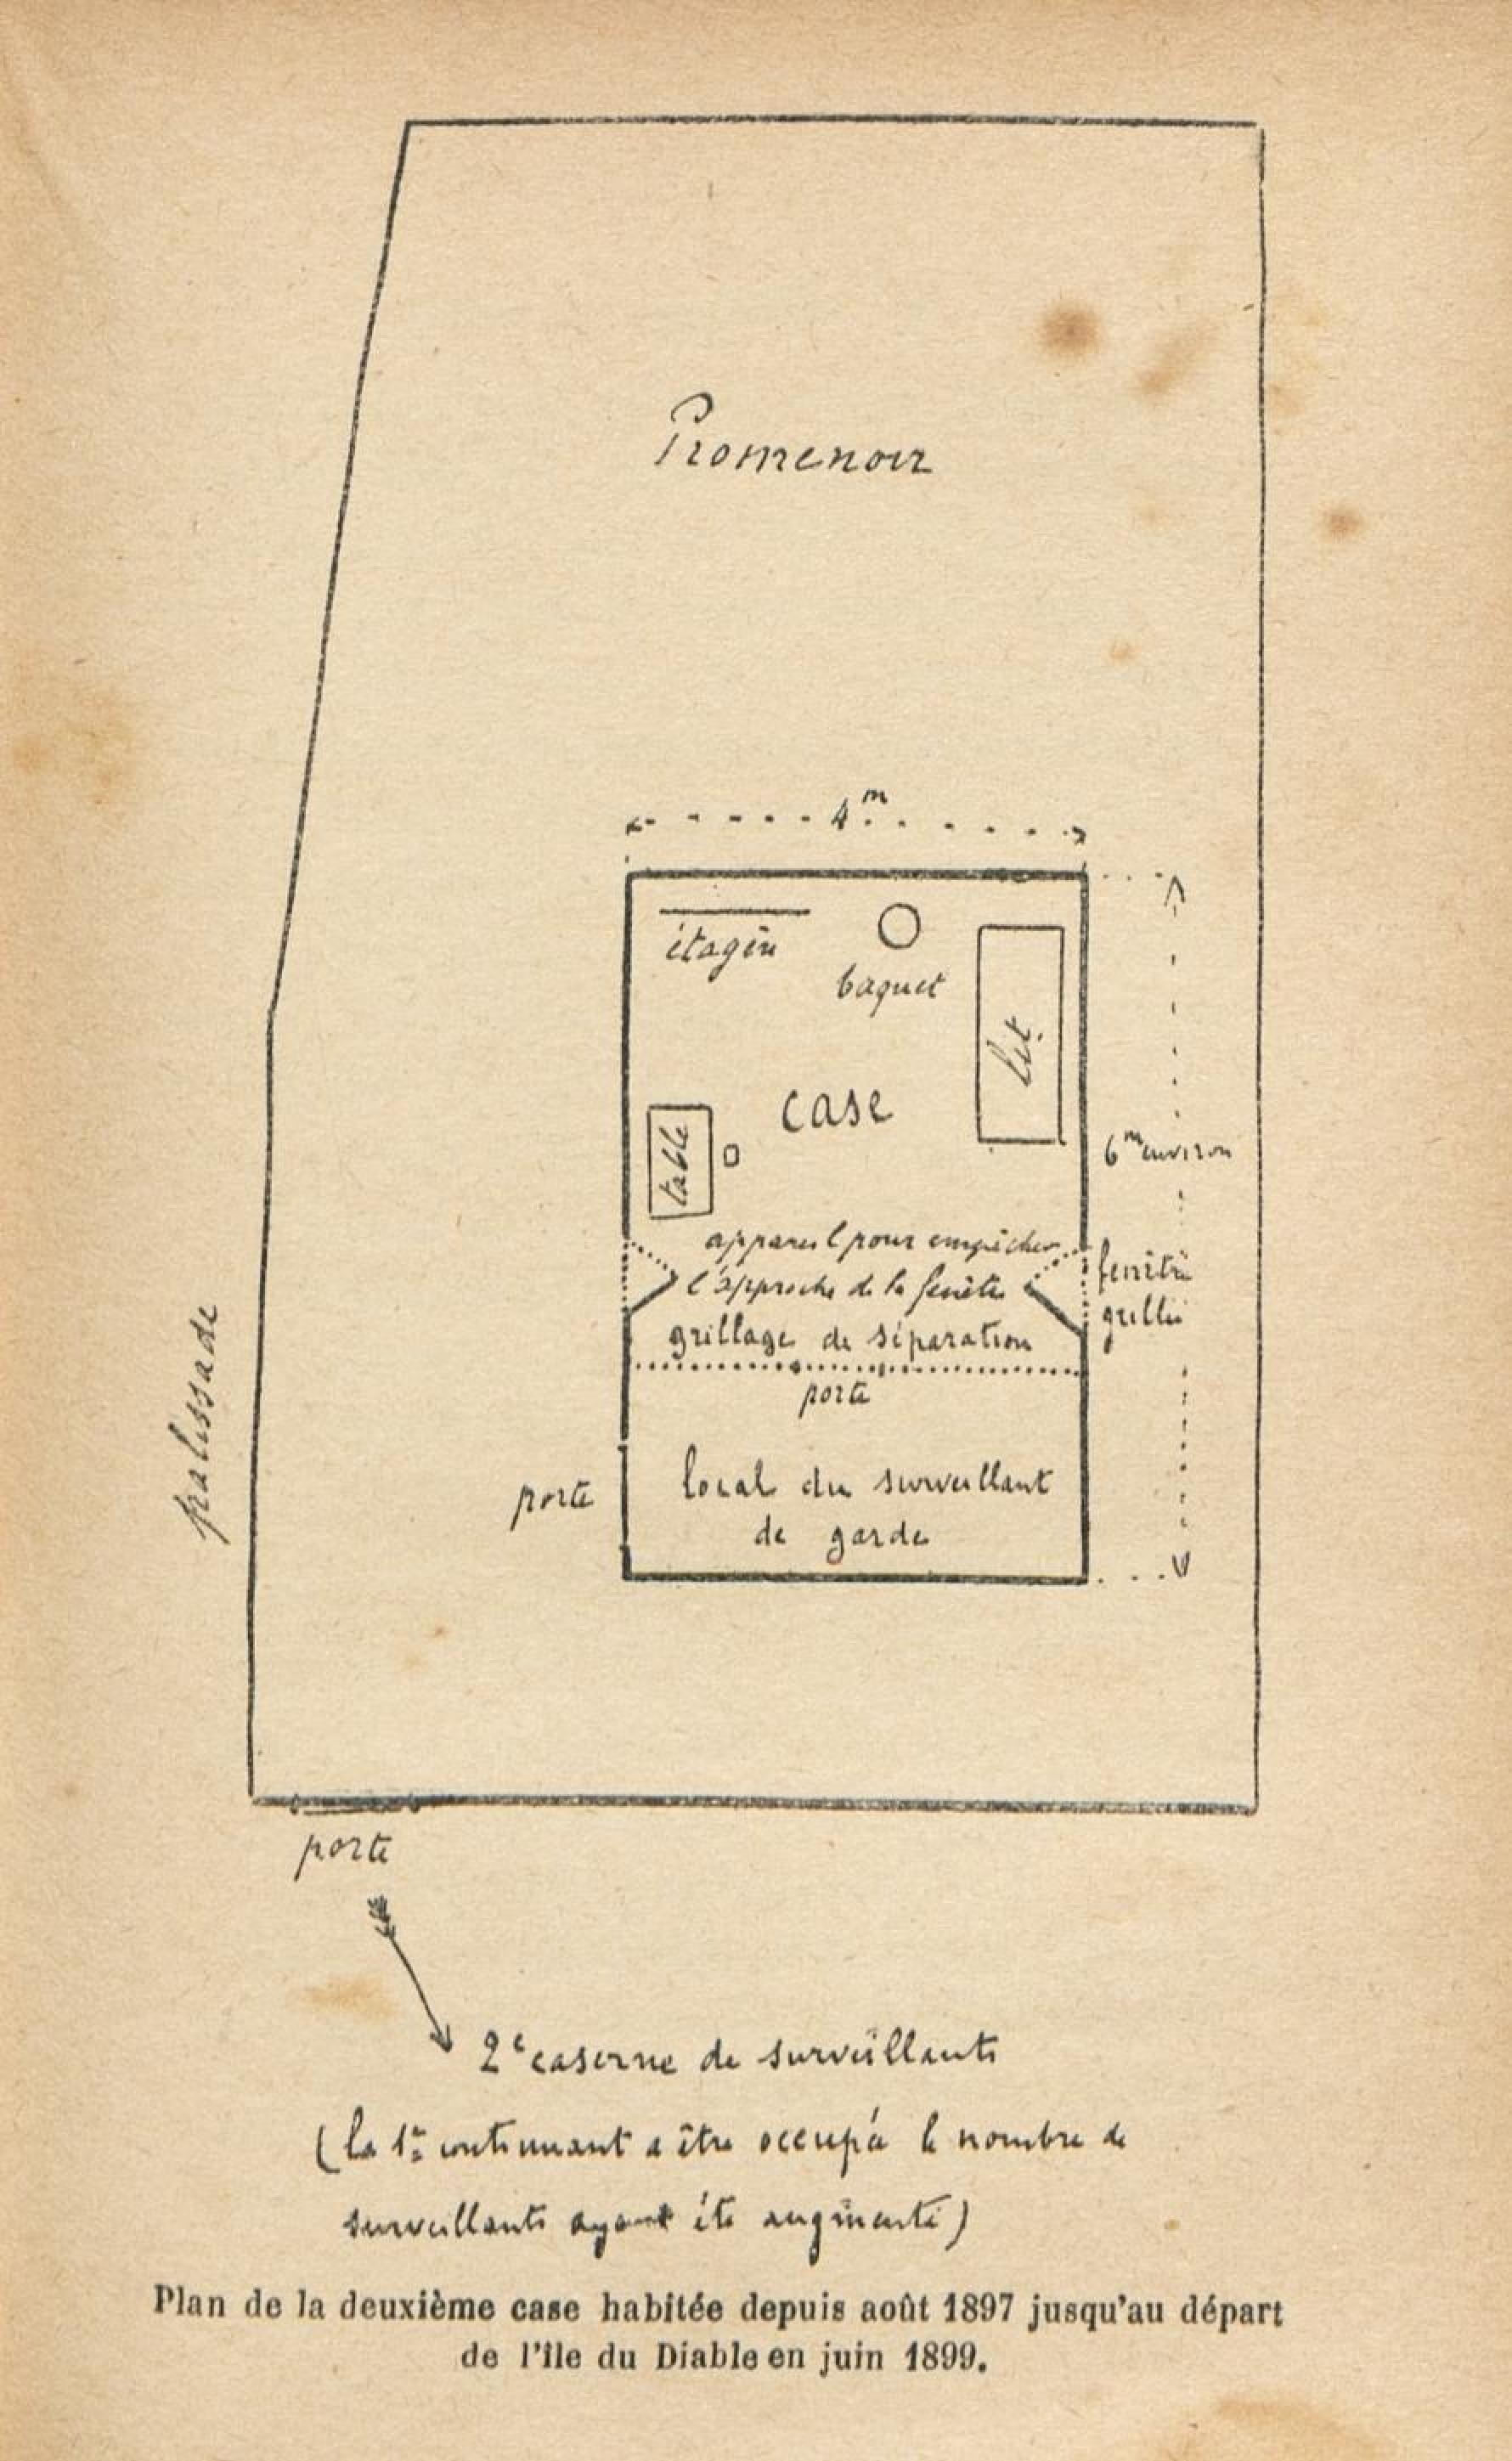 Promenoir
4m
étagère
baquet
lit
case
table
6m environ
appareil pour empêcher
l'approche de la fenêtre
fenêtre
grillée
grillage de séparation
porte
palissade
porte
local du surveillant
de garde
porte
2e caserne de surveillants
(la 1re continuant a être occupée le nombre de
surveillants ayant été augmenté)
Plan de la deuxième case habitée depuis août 1897 jusqu'au départ
de l'île du Diable en juin 1899.